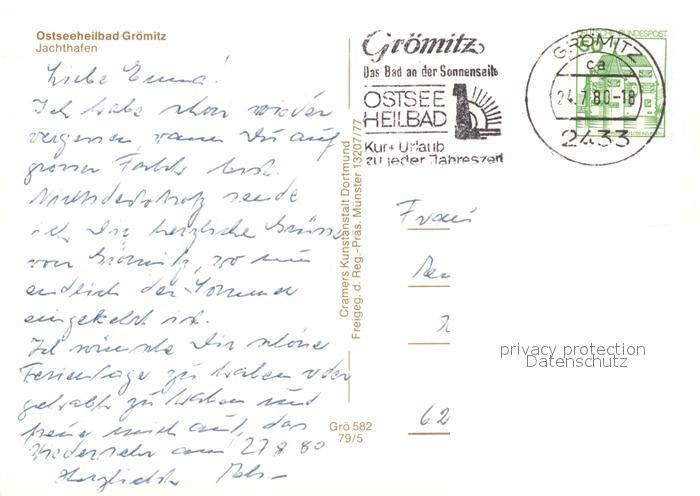 Ostseeheilbad Grömitz
Jachthafen
Liebe Emmi!
Ich habe schon wieder
vergessen, wann Du auf
grosser Fahrt bist.
Nichtsdestotrotz sende
ich Dir herzliche Grüsse
von Grömitz, wo nun
endlich der Sommer
eingekehrt ist.
Ich wünsche Dir schöne
Ferientage zu haben oder
gehabt zu haben und
freue mich auf das
Wiedersehn am 27 8 80
Herzlichst
Cramers Kunstanstalt Dortmund
Freigeg. d. Reg.-Präs. Münster 13207/77
Grö 582
79/5
Grömitz
Das Bad an der Sonnenseite
OSTSEE
HEILBAD
Kur + Urlaub
zu jeder Jahreszeit
GRÖMITZ
ca
24.7.80-18
2433
DEUTSCHE BUNDESPOST
50
Frau
62
privacy protection
Datenschutz